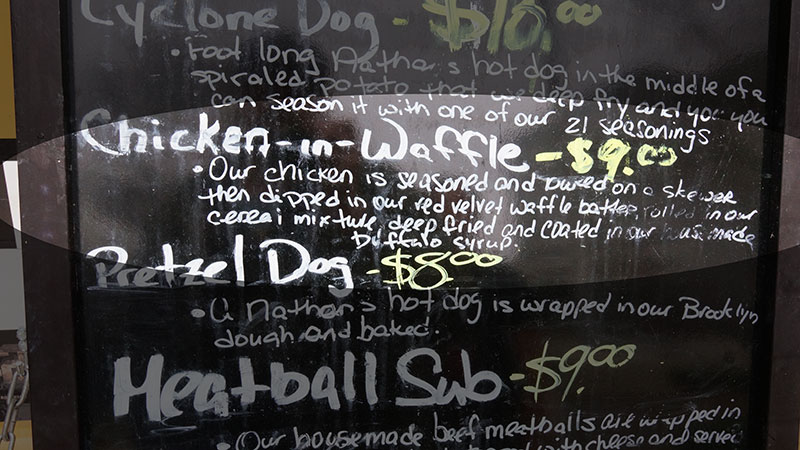 Cyclone Dog - $10.00
• Foot long Nathan's hot dog in the middle of a
spiraled potato that we deep fry and you
can season it with one of our 21 seasonings
Chicken-in-Waffle - $9.00
• Our chicken is seasoned and on a skewer
then dipped in our red velvet waffle batter, rolled in our
cereal mixture, deep fried and coated in our housemade
Buffalo syrup.
Pretzel Dog - $8.00
• A Nathan's hot dog is wrapped in our Brooklyn
dough and baked.
Meatball Sub - $9.00
• Our housemade beef meatballs are wrapped in
with cheese and served